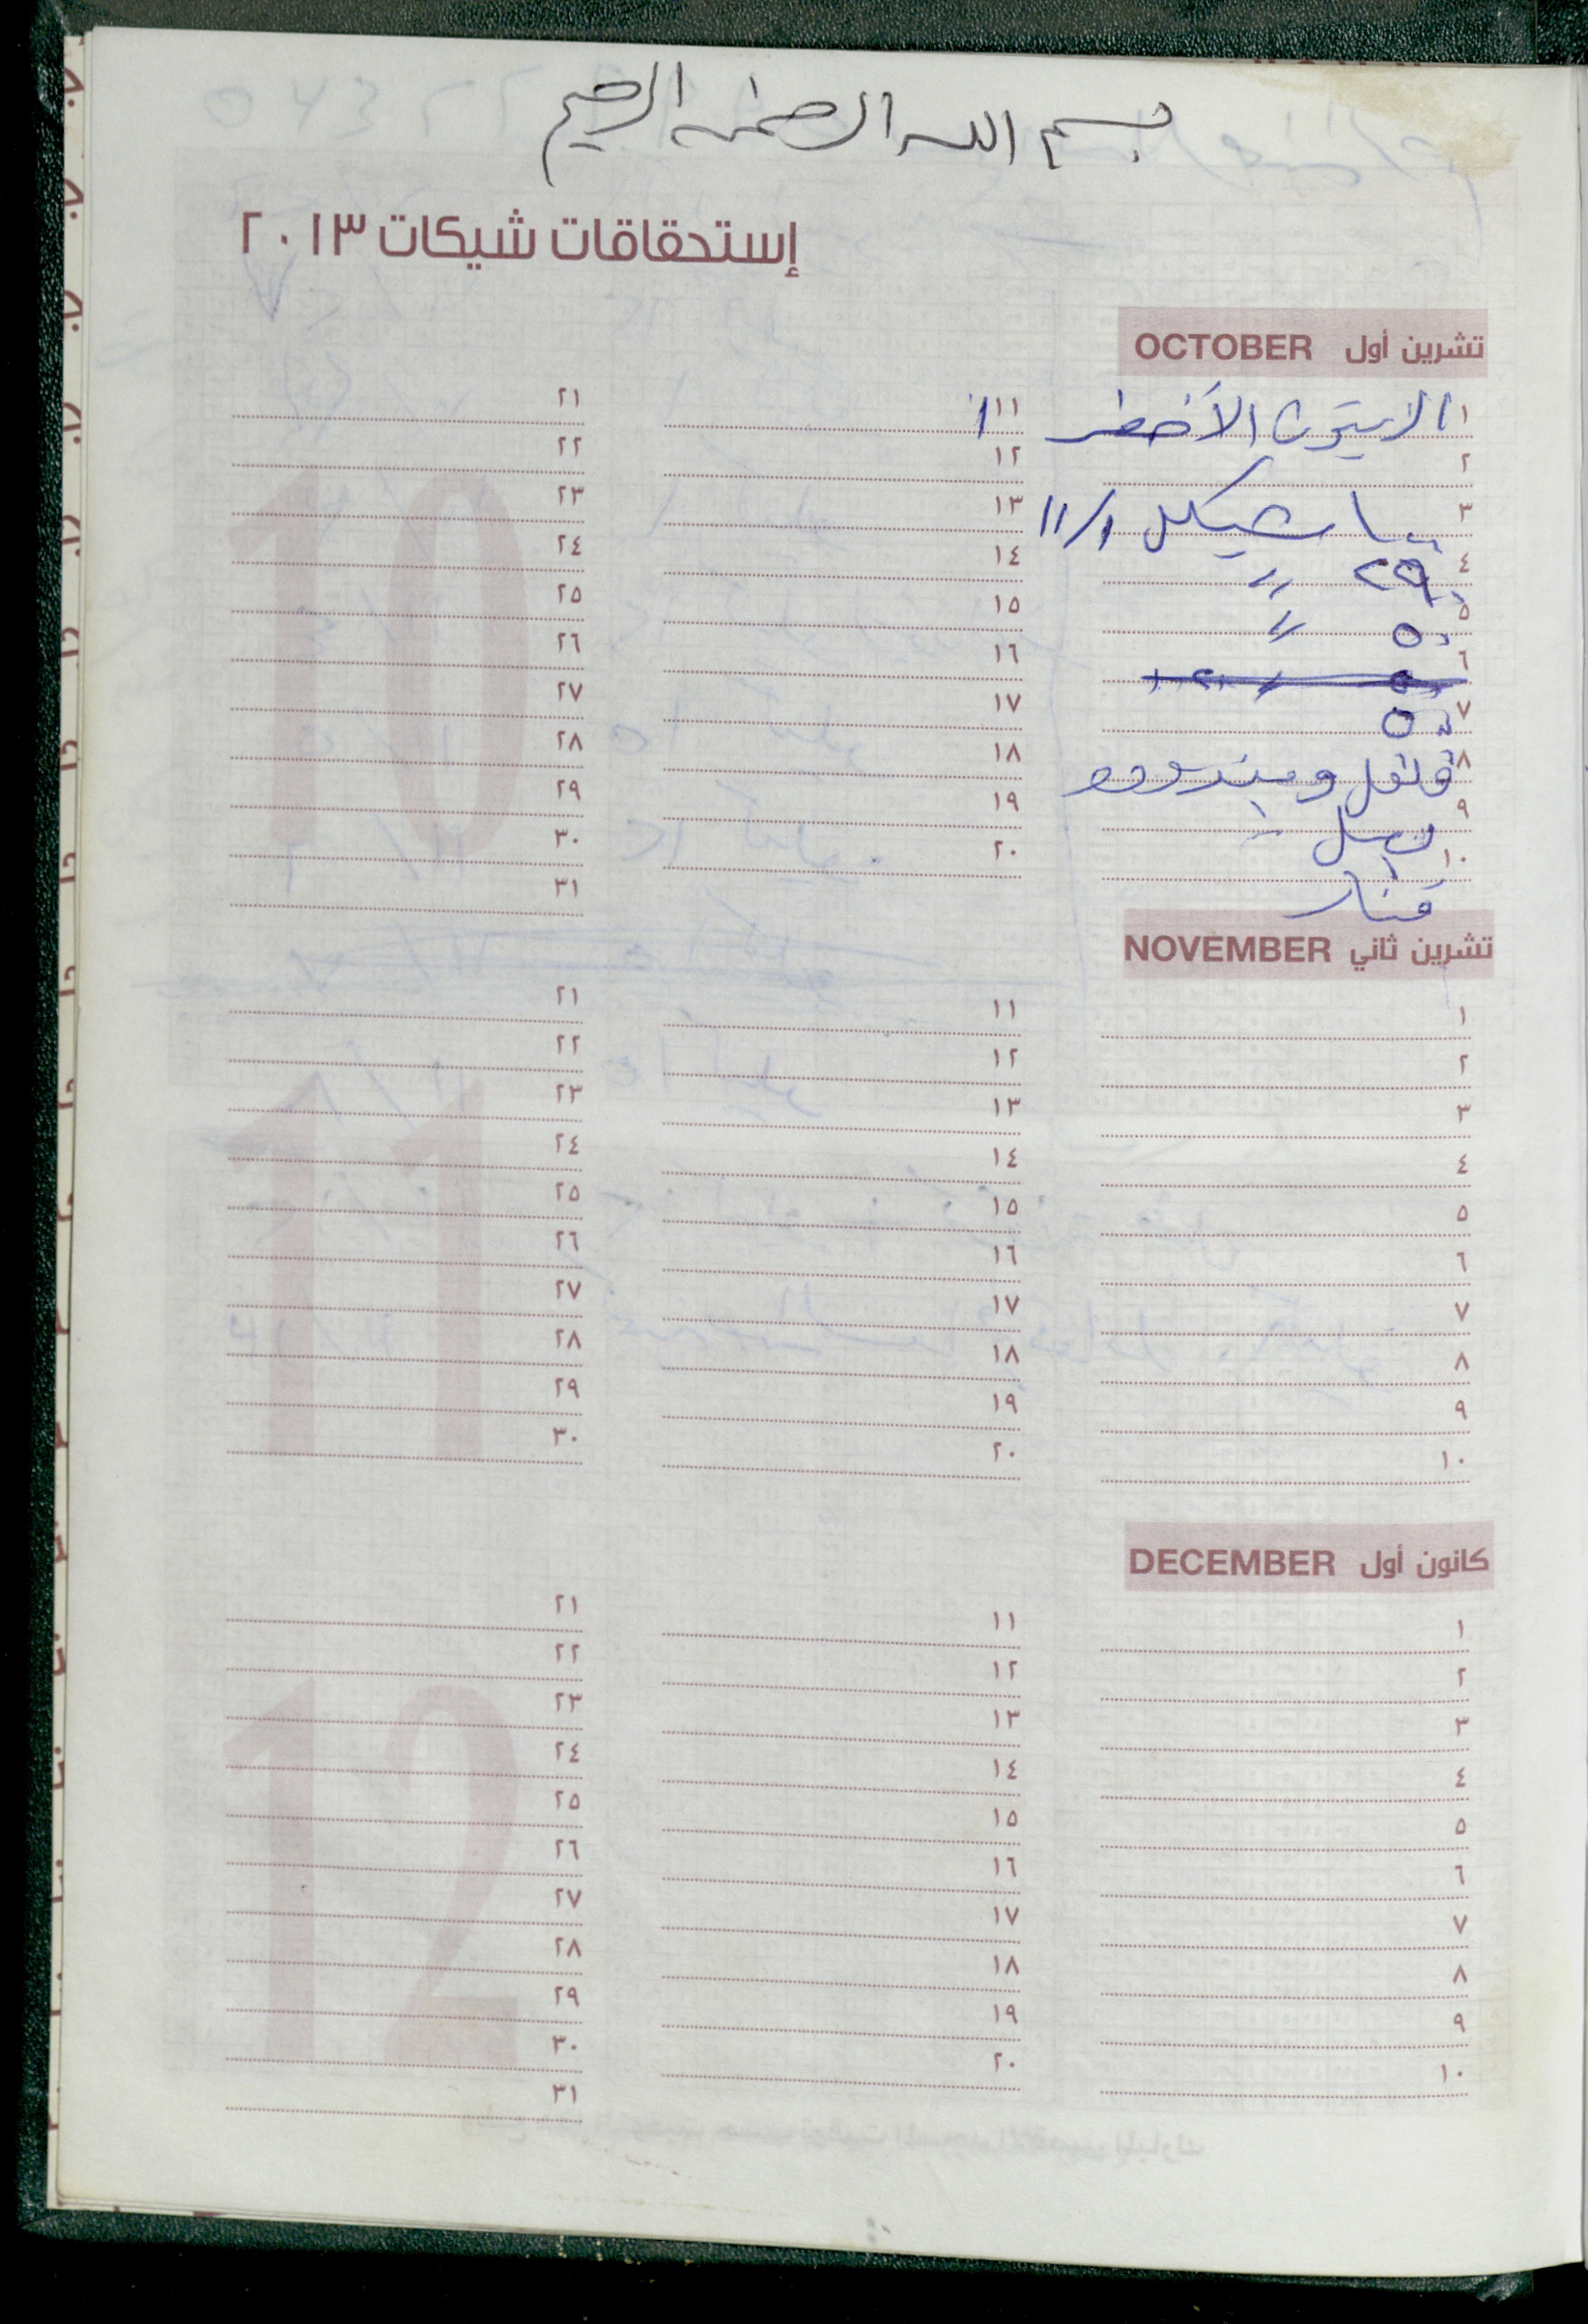 بسم الله الرحمن الرحيم
إستحقاقات شيكات ٢٠١٣
تشرين أول OCTOBER
١ الزيتون الأخضر
٢
٣ شيكل ١١/١
٤ ٢٩٠ //
٥ ٥٠ //
٦
٧ ٥٠
٨ فلفل وبندوره
٩ بصل
١٠
خيار
١١
١٢
١٣
١٤
١٥
١٦
١٧
١٨
١٩
٢٠
٢١
٢٢
٢٣
٢٤
٢٥
٢٦
٢٧
٢٨
٢٩
٣٠
٣١
10
تشرين ثاني NOVEMBER
١
٢
٣
٤
٥
٦
٧
٨
٩
١٠
١١
١٢
١٣
١٤
١٥
١٦
١٧
١٨
١٩
٢٠
٢١
٢٢
٢٣
٢٤
٢٥
٢٦
٢٧
٢٨
٢٩
٣٠
11
كانون أول DECEMBER
١
٢
٣
٤
٥
٦
٧
٨
٩
١٠
١١
١٢
١٣
١٤
١٥
١٦
١٧
١٨
١٩
٢٠
٢١
٢٢
٢٣
٢٤
٢٥
٢٦
٢٧
٢٨
٢٩
٣٠
٣١
12